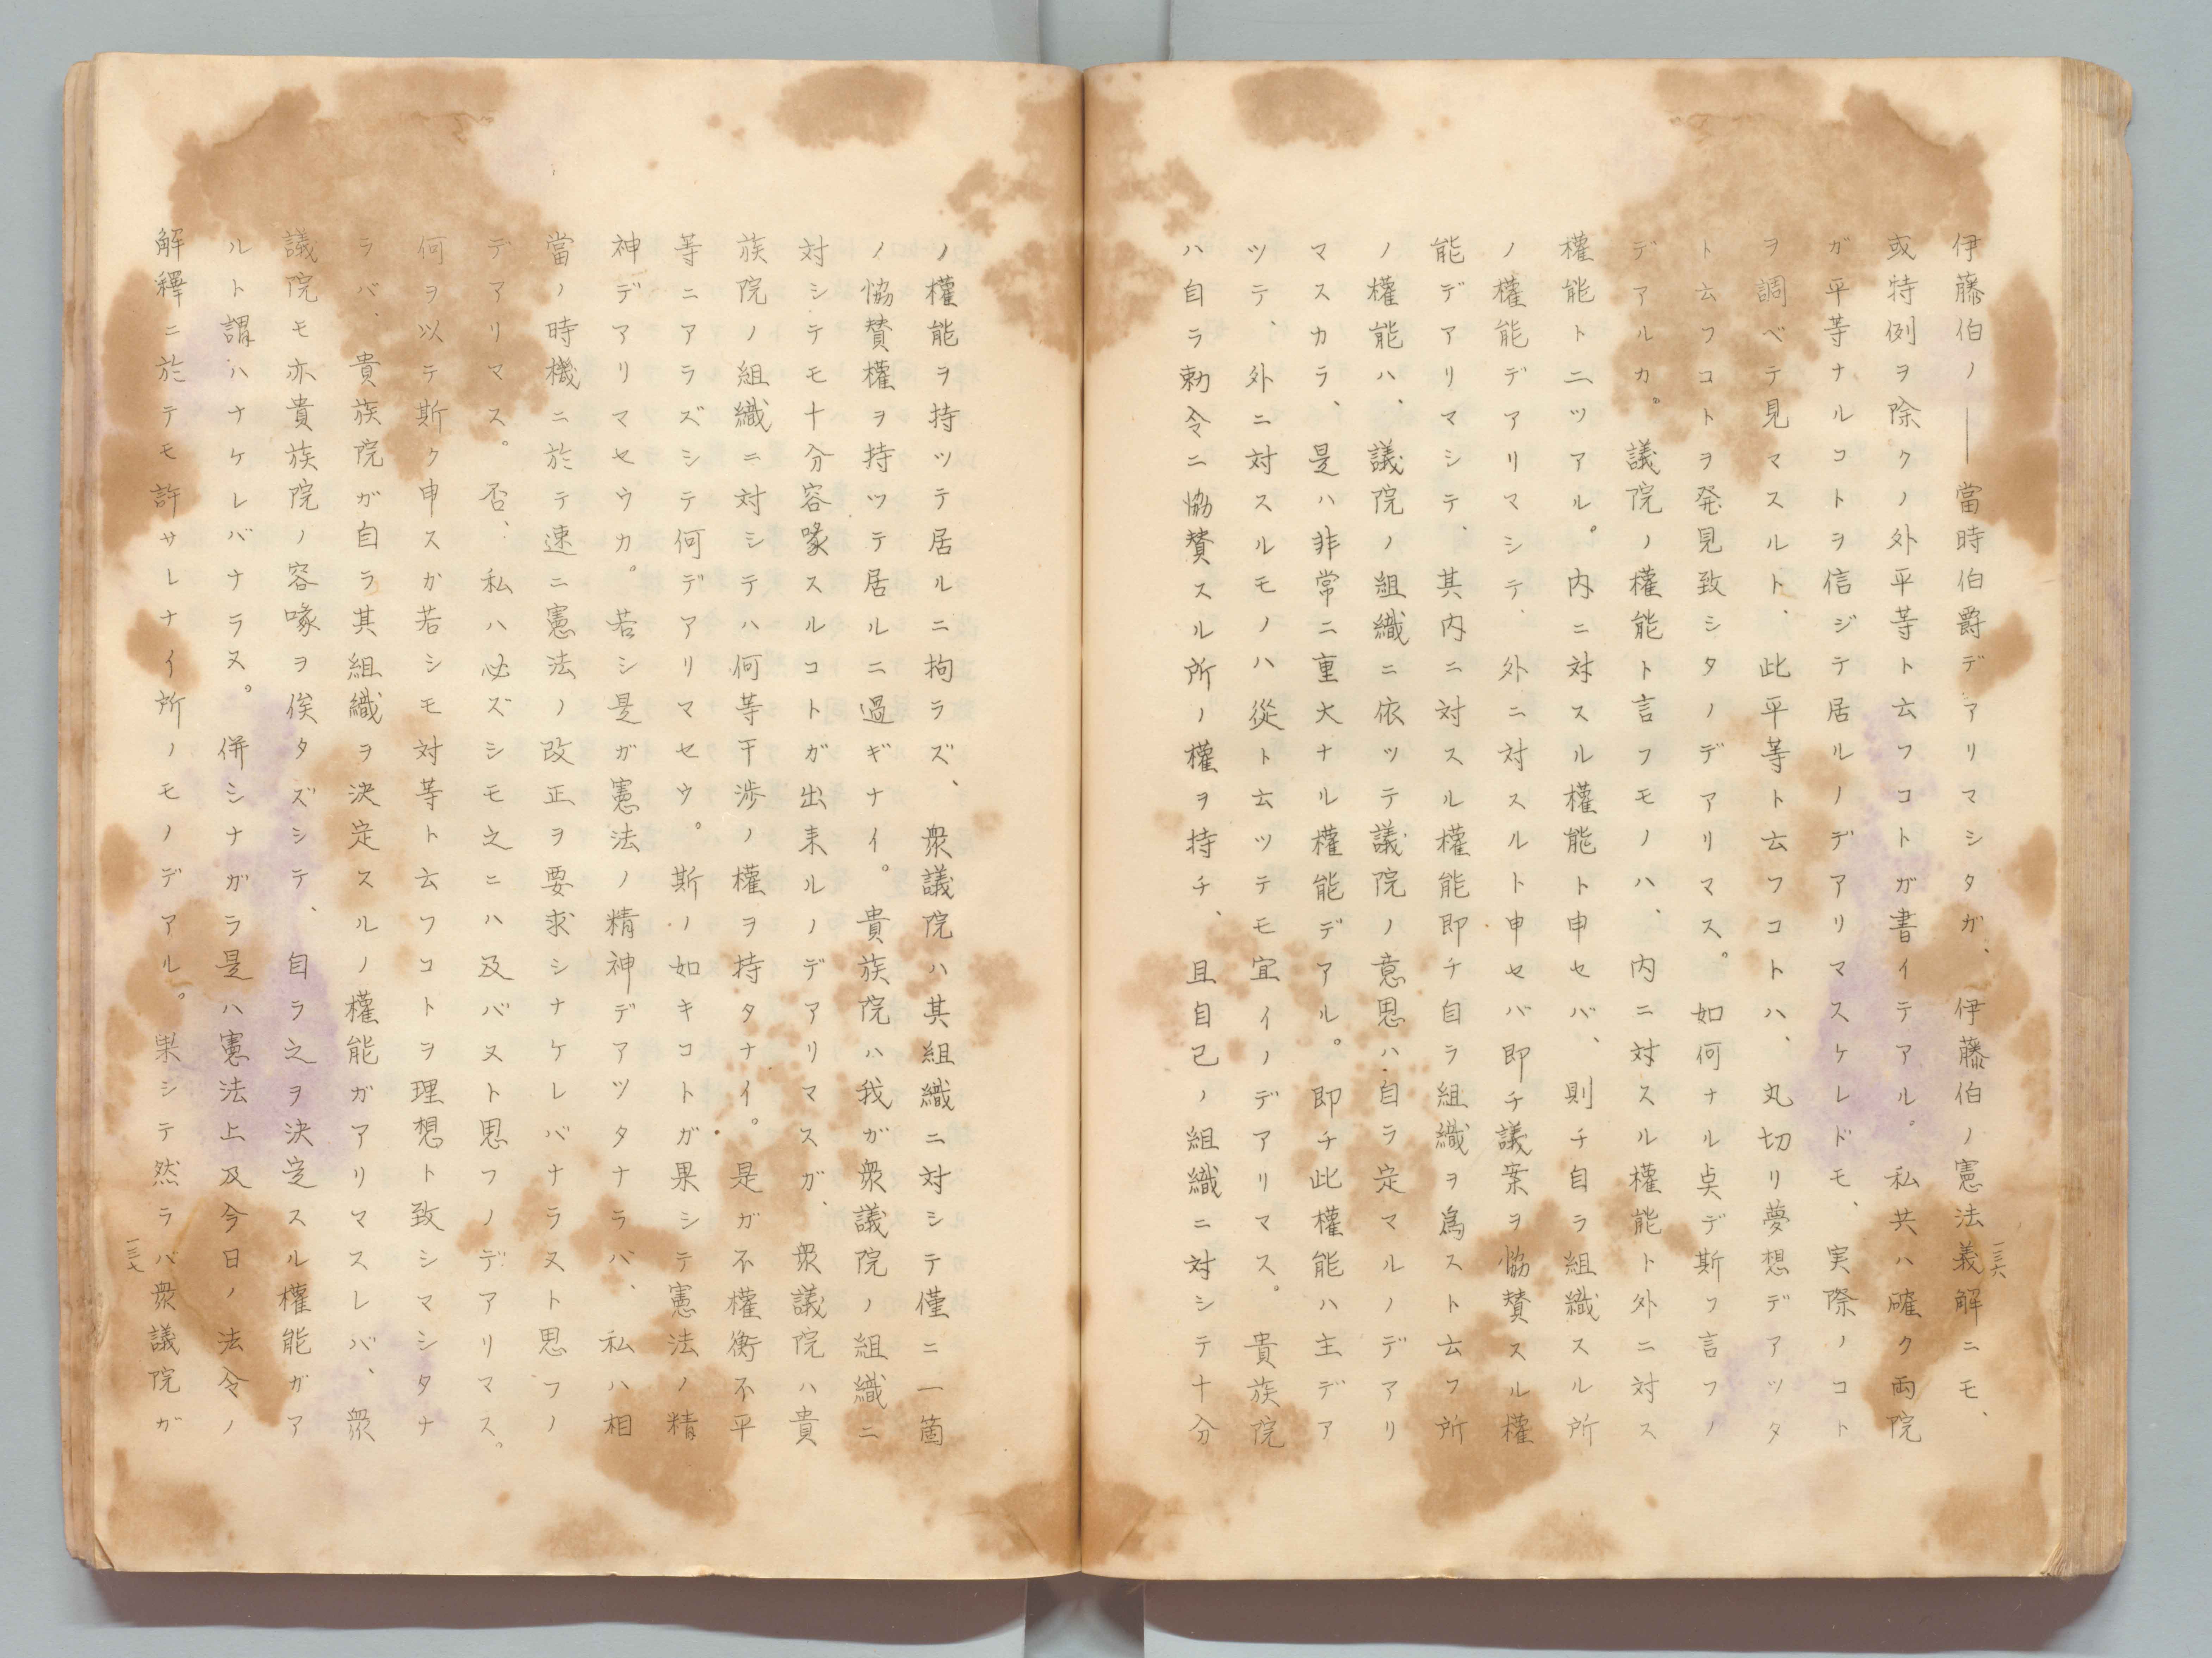 伊藤伯ノ――當時伯爵デアリマシタガ、伊藤伯ノ憲法義解ニモ、
或特例ヲ除クノ外平等ト云フコトガ書イテアル。私共ハ確ク両院
ガ平等ナルコトヲ信ジテ居ルノデアリマスケレドモ、実際ノコト
ヲ調ベテ見マスルト、此平等ト云フコトハ、丸切リ夢想デアツタ
ト云フコトヲ発見致シタノデアリマス。如何ナル点デ斯ク言フノ
デアルカ。議院ノ權能ト言フモノハ、内ニ対スル權能ト外ニ対ス
權能ト二ツアル。内ニ対スル權能ト申セバ、則チ自ラ組織スル所
ノ權能デアリマシテ、外ニ対スルト申セバ即チ議案ヲ協賛スル權
能デアリマシテ、其内ニ対スル權能即チ自ラ組織ヲ爲ストム云フ所
ノ權能ハ、議院ノ組織ニ依ツテ議院ノ意思ハ自ラ定マルノデアリ
マスカラ、是ハ非常ニ重大ナル權能デアル。即チ此權能ハ主デア
ツテ、外ニ対スルモノハ從ト云ツテモ宜イノデアリマス。貴族院
ハ自ラ勅令ニ協賛スル所ノ權ヲ持チ、且自己ノ組織ニ対シテ十分
一三六
ノ權能ヲ持ツテ居ルニ拘ラズ、衆議院ハ其組織ニ対シテ僅ニ一箇
ノ協賛權ヲ持ツテ居ルニ過ギナイ。貴族院ハ我ガ衆議院ノ組織ニ
対シテモ十分容喙スルコトガ出来ルノデアリマスガ、衆議院ハ貴
族院ノ組織ニ対シテハ何等干渉ノ權ヲ持タナイ。是ガ不權衡不平
等ニアラズシテ何デアリマセウ。斯ノ如キコトガ果シテ憲法ノ精
神デアリマセウカ。若シ是ガ憲法ノ精神デアツタナラバ、私ハ相
當ノ時機ニ於テ速ニ憲法ノ改正ヲ要求シナケレバナラヌト思フノ
デアリマス。否、私ハ必ズシモ之ニハ及バヌト思フノデアリマス。
何ヲ以テ斯ク申スカ若シモ対等ト云フコトヲ理想ト致シマシタナ
ラバ、貴族院ガ自ラ其組織ヲ決定スルノ權能ガアリマスレバ、衆
議院モ亦貴族院ノ容喙ヲ俟タズシテ、自ラ之ヲ決定スル權能ガア
ルト謂ハナケレバナラヌ。併シナガラ是ハ憲法上及今日ノ法令ノ
解釋ニ於テモ許サレナイ所ノモノデアル。果シテ然ラバ衆議院ガ
一三七